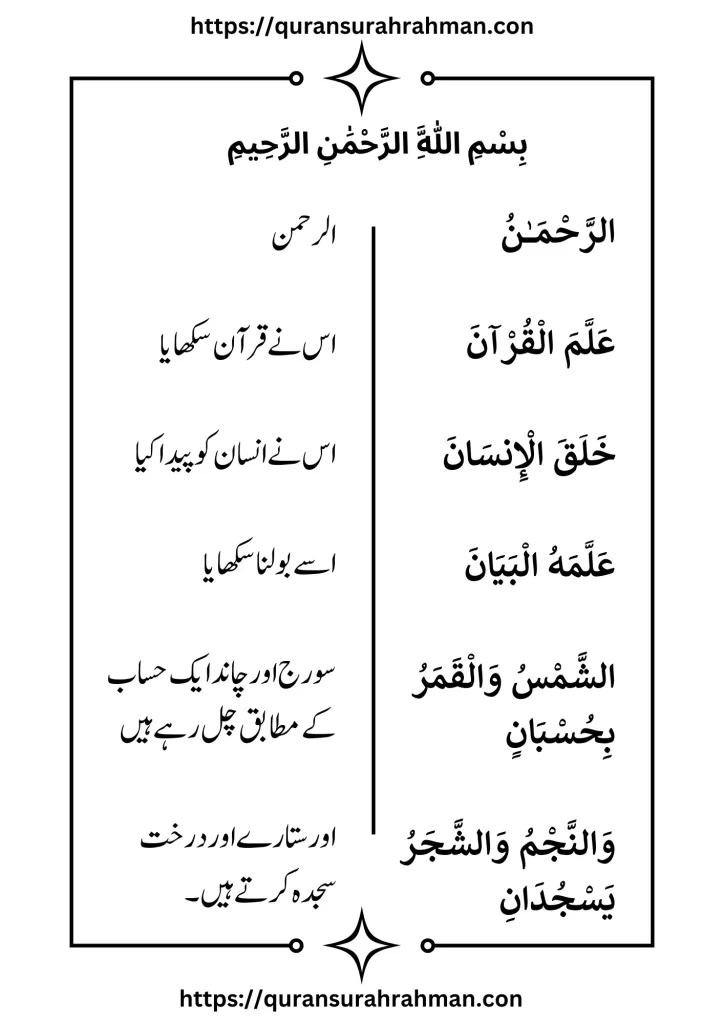 https://quransurahrahman.con
بِسْمِ اللَّهَِ الرَّحْمَٰنِ الرَّحِيمِ
الرَّحْمَـٰنُ
الرحمن
عَلَّمَ الْقُرْآنَ
اس نے قرآن سکھایا
خَلَقَ الْإِنسَانَ
اس نے انسان کو پیدا کیا
عَلَّمَهُ الْبَيَانَ
اسے بولنا سکھایا
الشَّمْسُ وَالْقَمَرُ
بِحُسْبَانٍ
سورج اور چاند ایک حساب
کے مطابق چل رہے ہیں
وَالنَّجْمُ وَالشَّجَرُ
يَسْجُدَانِ
اور ستارے اور درخت
سجدہ کرتے ہیں۔
https://quransurahrahman.con